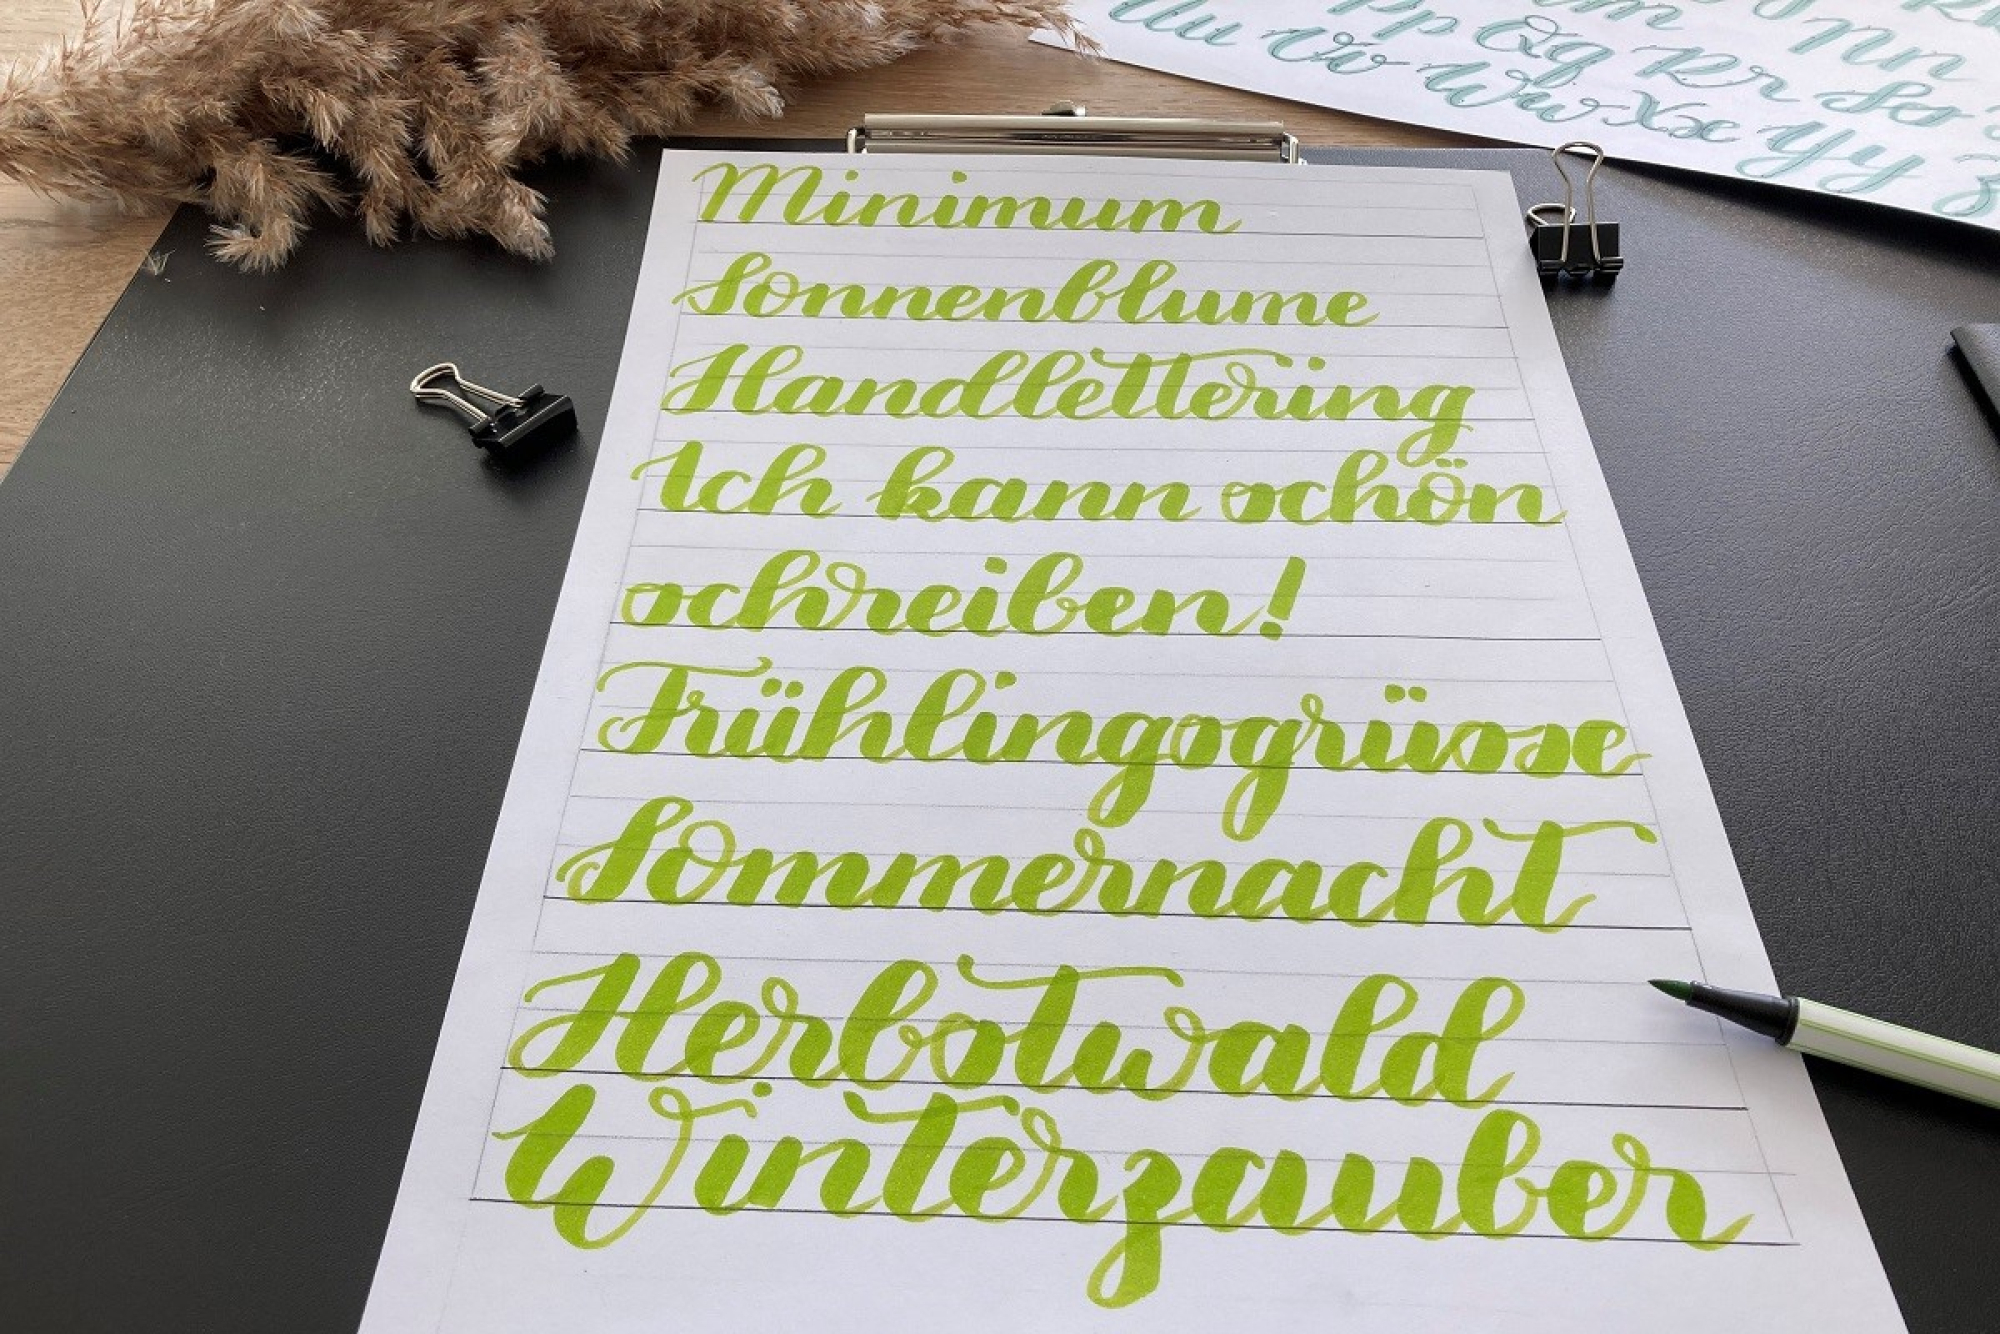 Uu Vv Ww Xx Yy Z
Pp Qq Rr Ss
Nn
Minimum
Sonnenblume
Handlettering
Ich kann schön
schreiben!
Frühlingsgrüsse
Sommernacht
Herbstwald
Winterzauber